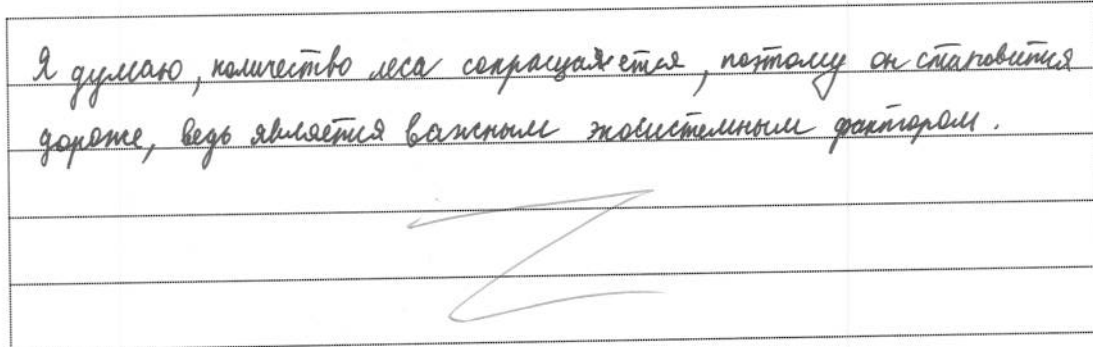 Я думаю, количество леса сокращается, поэтому он становится
дороже, ведь является важным экосистемным фактором.